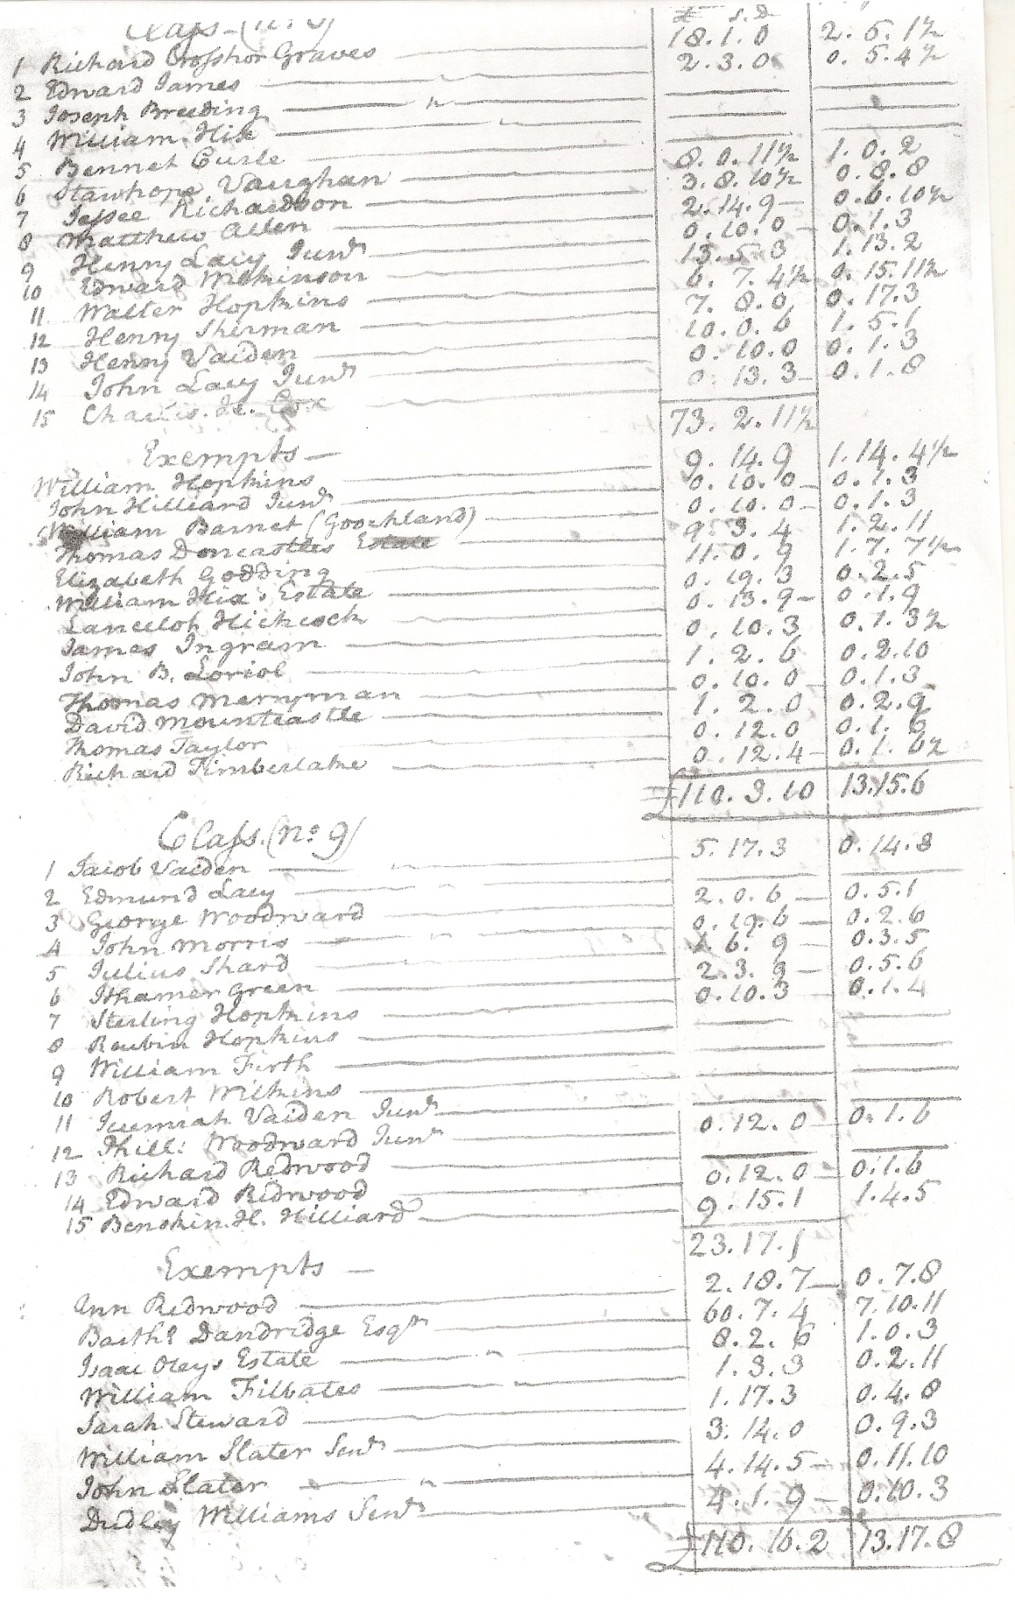 Class. (No. 8)
£ S. D
1 Richard Crosshor Graves 18.1.0 2.5.1½
2 Edward James 2.3.0 0.5.4½
3 Joseph Breeding
4 William Hix
5 Bennet Curle
6 Stawhope Vaughan 8.0.11½ 1.0.2
7 Jessee Richardson 3.8.10½ 0.8.8
8 Matthew Allen 2.14.9 0.6.10½
9 Henry Lacy Junr 0.10.0 0.1.3
10 Edward Wilkinson 13.5.3 1.13.2
11 Walter Hopkins 6.7.4½ 0.15.11½
12 Henry Sherman 7.8.0 0.17.3
13 Henry Vaiden 10.0.6 1.5.1
14 John Lacy Junr 0.10.0 0.1.3
15 Charles. Je. Cox 0.13.3 0.1.8
73.2.11½
Exempts
William Hopkins 9.14.9 1.14.4½
John Hilliard Junr 0.10.0 0.1.3
William Barnet (Goochland) 0.10.0 0.1.3
Thomas Doncastles Estate 9.3.4 1.2.11
Elizabeth Godding 11.0.9 1.7.7½
William Hix's Estate 0.19.3 0.2.5
Lancelot Hichcock 0.13.9 0.1.9
James Ingram 0.10.3 0.1.3½
John B. Loriol 1.2.6 0.2.10
Thomas Merryman 0.10.0 0.1.3
David Mountcastle 1.2.0 0.2.9
Thomas Taylor 0.12.0 0.1.6
Richard Timberlake 0.12.4 0.1.6½
£110.3.10 13.15.6
Class. (No. 9)
1 Jacob Vaiden 5.17.3 0.14.8
2 Edmund Lacy
3 George Woodward 2.0.6 0.5.1
4 John Morris 0.19.6 0.2.6
5 Julius Shard 1.6.9 0.3.5
6 Ithamer Green 2.3.9 0.5.6
7 Sterling Hopkins 0.10.3 0.1.4
8 Reubin Hopkins
9 William Firth
10 Robert Wilkins
11 Jeremiah Vaiden Junr
12 Phill: Woodward Junr 0.12.0 0.1.6
13 Richard Redwood
14 Edward Redwood 0.12.0 0.1.6
15 Benskin. H. Hilliard 9.15.1 1.4.5
23.17.1
Exempts
Ann Redwood 2.18.7 0.7.8
Barthw Dandridge Esqr 60.7.4 7.10.11
Isaac Oleys Estate 8.2.6 1.0.3
William Filbates 1.3.3 0.2.11
Sarah Steward 1.17.3 0.4.8
William Slater Senr 3.14.0 0.9.3
John Slater 4.14.5 0.11.10
Dudley Williams Senr 4.1.9 0.10.3
£110.16.2 13.17.8